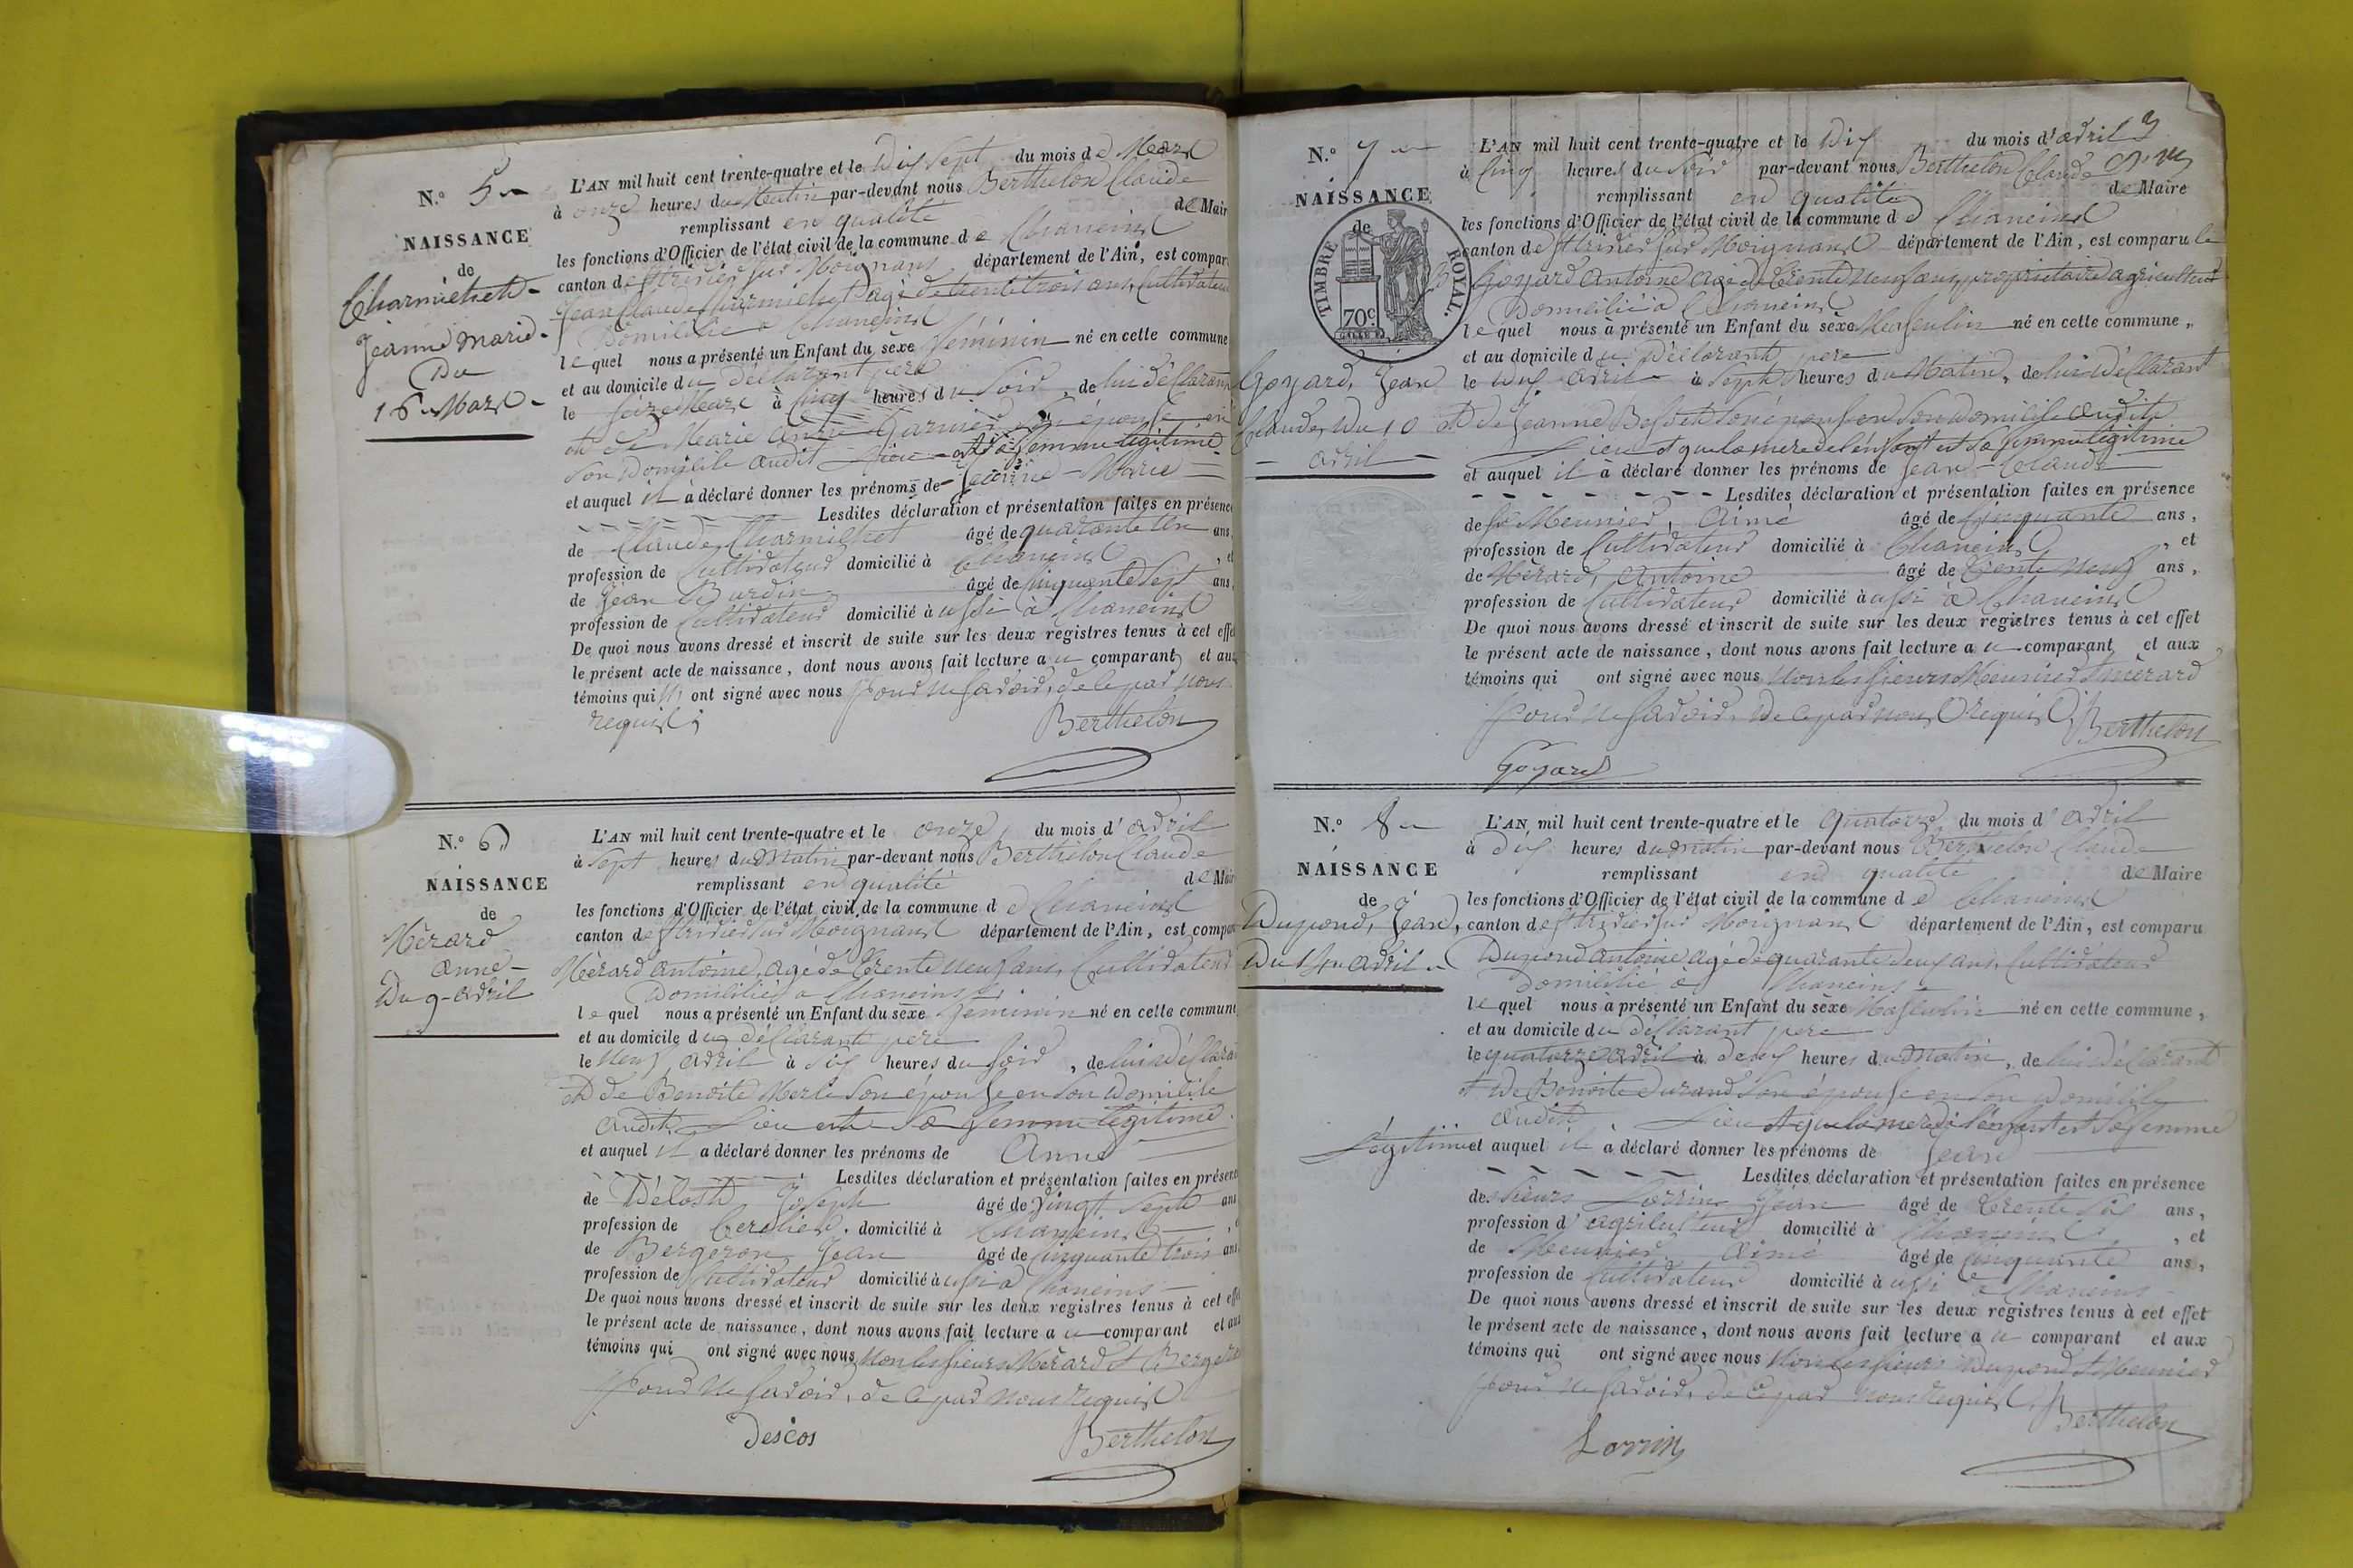 N.° 5
NAISSANCE
de
Charmiehet
Jeanne Marie
Du
16 Mars
L'AN mil huit cent trente-quatre et le Dix Sept du mois de Mars
à onze heures du Matin par-devant nous Berthelon Claude
remplissant en qualité de Mair
les fonctions d'Officier de l'état civil de la commune de Chaneins
canton de St trivier sur Moignans département de l'Ain, est compar
Jean Claude Charmiehet agé de trente trois ans, Cultivateur
Domicilié a Chaneins
lequel nous a présenté un Enfant du sexe féminin né en cette commune
et au domicile du déclarant pere
le seize Mars à cinq heures du soir, de lui déclarant
et de Marie Garnier son épouse en
son domicile audit Lieu et sa femme légitime
et auquel il a déclaré donner les prénoms de Jeanne-Marie
Lesdites déclaration et présentation faites en présence
de Claude Charmiehet âgé de quarante un ans,
profession de Cultivateur domicilié à Chaneins, et
de Jean Burdin âgé de cinquante sept ans,
profession de Cultivateur domicilié à ussi à Chaneins
De quoi nous avons dressé et inscrit de suite sur les deux registres tenus à cet effet
le présent acte de naissance, dont nous avons fait lecture au comparant et aux
témoins qui n'ont signé avec nous pour ne savoir, de ce par nous
requis
Berthelon
N.° 6
NAISSANCE
de
Mérard
anne
Du 9 avril
L'AN mil huit cent trente-quatre et le onze du mois d'avril
à Sept heures du Matin par-devant nous Berthelon Claude
remplissant en qualité de Mair
les fonctions d'Officier de l'état civil de la commune de Chaneins
canton de St trivier sur Moignans département de l'Ain, est compar
Mérard antoine, agé de trente neuf ans, Cultivateur
Domicilié a Chaneins
lequel nous a présenté un Enfant du sexe féminin né en cette commune
et au domicile du déclarant pere
le neuf avril à six heures du soir, de lui déclarant
et de Benoite Merle son épouse en son domicile
audit Lieu et sa femme légitime
et auquel il a déclaré donner les prénoms de Anne
Lesdites déclaration et présentation faites en présence
de Joseph âgé de vingt sept ans
profession de domicilié à Chaneins
de Bergeron Jean âgé de cinquante trois ans
profession de Cultivateur domicilié à ussi a Chaneins
De quoi nous avons dressé et inscrit de suite sur les deux registres tenus à cet effet
le présent acte de naissance, dont nous avons fait lecture au comparant et aux
témoins qui ont signé avec nous non les sieurs Mérard et Bergeron
pour ne savoir, de ce par nous requis
Descos
Berthelon
3
N.° 7
NAISSANCE
de
TIMBRE ROYAL
70c
Goyard, Jean
Claude, Du 10
avril
L'AN mil huit cent trente-quatre et le Dix du mois d'avril
à Cinq heures du soir par-devant nous Berthelon Claude
remplissant en qualité de Maire
les fonctions d'Officier de l'état civil de la commune de Chaneins
canton de St trivier sur Moignans département de l'Ain, est comparu le
Sr Goyard antoine agé de trente neuf ans, propriétaire agriculteur
Domicilié à Chaneins
lequel nous à présenté un Enfant du sèxe Masculin né en cette commune,
et au domicile du déclarant pere
le dix avril à Sept heures du Matin, de lui déclarant
et de Jeanne son épouse en son domicile audit
Lieu et que la mere de l'enfant est sa femme légitime
et auquel il à déclaré donner les prénoms de Jean-Claude
Lesdites déclaration et présentation faites en présence
de Sr Meunier, Aimé âgé de cinquante ans,
profession de Cultivateur domicilié à Chaneins, et
de Mérard, Antoine âgé de trente neuf ans,
profession de Cultivateur domicilié à ussi à Chaneins
De quoi nous avons dressé et inscrit de suite sur les deux registres tenus à cet effet
le présent acte de naissance, dont nous avons fait lecture au comparant et aux
témoins qui ont signé avec nous non les sieurs Meunier et Mérard
pour ne savoir, de ce par nous requis
Berthelon
Goyard
N.° 8
NAISSANCE
de
Dupond, Jean,
Du 14 avril
L'AN mil huit cent trente-quatre et le quatorze du mois d'avril
à dix heures du matin par-devant nous Berthelon Claude
remplissant en qualité de Maire
les fonctions d'Officier de l'état civil de la commune de Chaneins
canton de St trivier sur Moignans département de l'Ain, est comparu
Dupond antoine agé de quarante deux ans, Cultivateur
Domicilié à Chaneins
lequel nous à présenté un Enfant du sèxe Masculin né en cette commune,
et au domicile du déclarant pere
le quatorze avril à deux heures du matin, de lui déclarant
et de Benoite Durand son épouse en son domicile
audit Lieu et que la mere de l'enfant est sa femme
légitime et auquel il à déclaré donner les prénoms de Jean
Lesdites déclaration et présentation faites en présence
des sieurs Lorrin Jean âgé de trente six ans,
profession d'agriculteur domicilié à Chaneins, et
de Meunier Aimé âgé de cinquante ans,
profession de Cultivateur domicilié à ussi à Chaneins
De quoi nous avons dressé et inscrit de suite sur les deux registres tenus à cet effet
le présent acte de naissance, dont nous avons fait lecture au comparant et aux
témoins qui ont signé avec nous non les sieurs Dupond et Meunier
pour ne savoir, de ce par nous requis
Berthelon
Lorrin